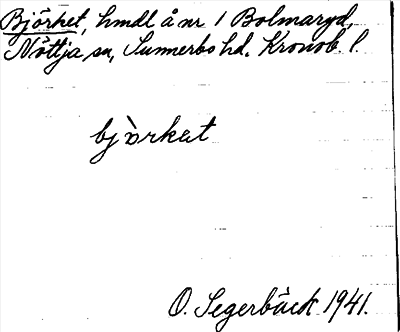 Björket, hmdl å nr 1 Bolmaryd,
Nöttja sn, Sunnerbo hd. Kronob. l.
bjö̀rkət
O. Segerbäck 1941.